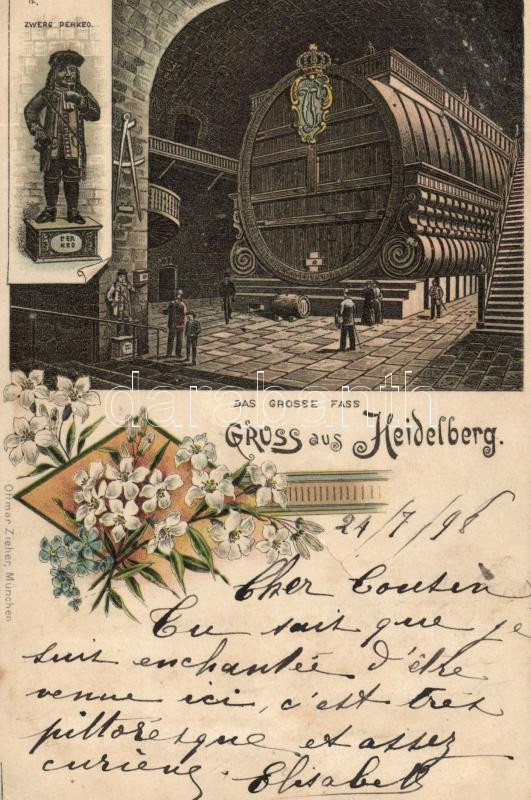 ZWERG PERKEO.
PER
KEO
DAS GROSSE FASS
GRUSS aus Heidelberg.
darabanth
Ottmar Zieher, München
24/7/98
Cher Cousin
Tu sait que je
suit enchantée d'être
venue ici, c'est très
pittoresque et assez
curieux. Elisabeth